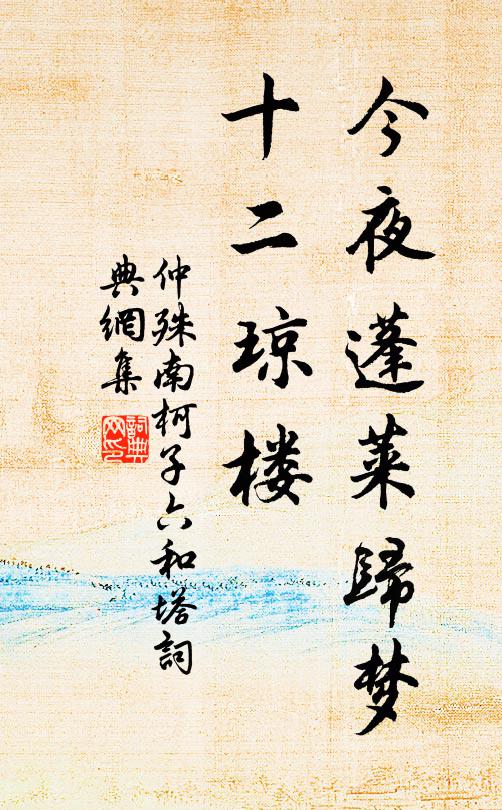 今夜蓬莱歸梦
十二琼楼
仲殊南柯子六和塔詞
典網集
詞典网印